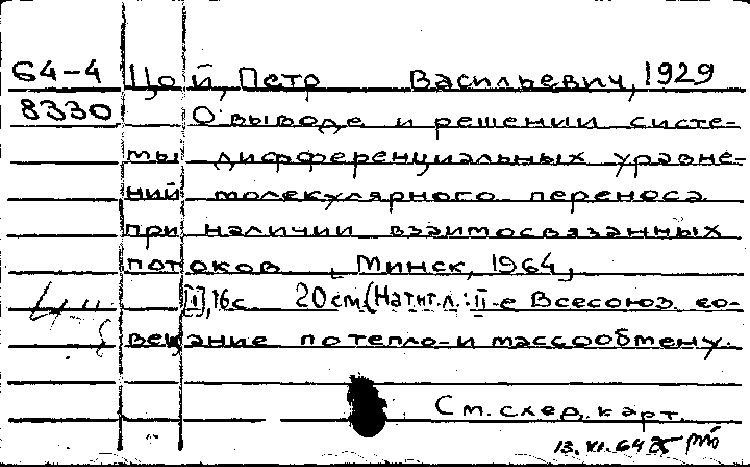 64-4 Цой, Петр Васильевич, 1929
8330 О выводе и решении систе-
мы дифференциальных уравне-
ний молекулярного переноса
при наличии взаимосвязанных
потоков. Минск, 1964,
[I], 16с. 20 см. (На тит. л.: II-е Всесоюз. со-
вещание по тепло- и массообмену.
См. след. карт.
13.XI.64